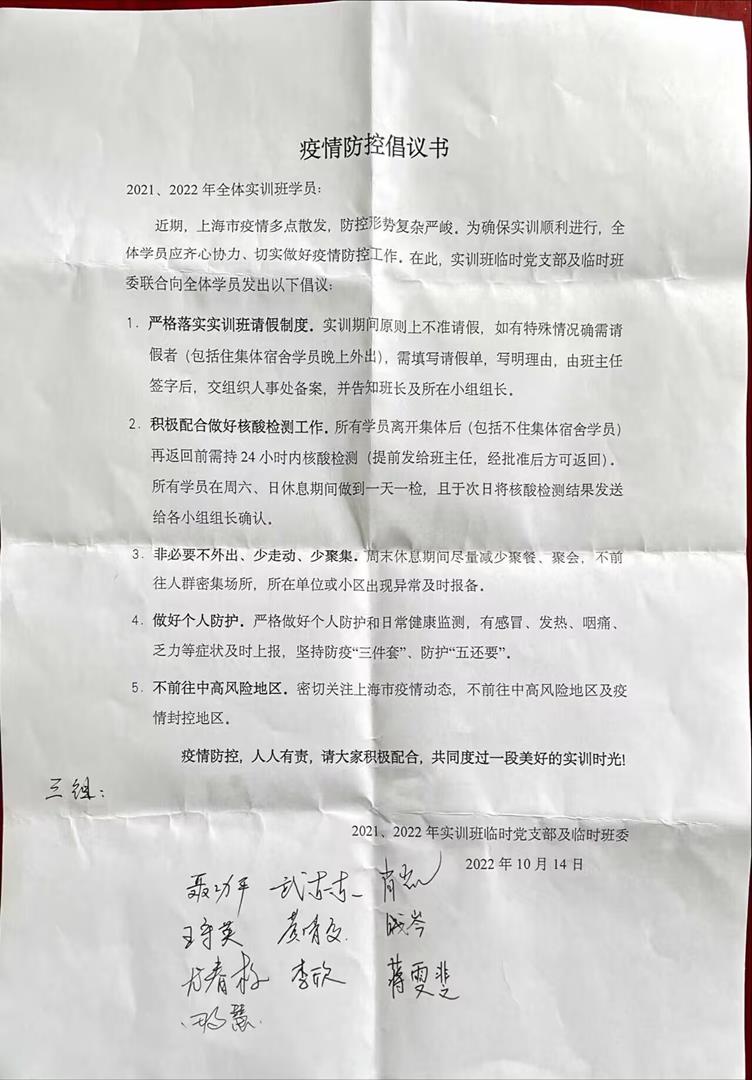 疫情防控倡议书
2021、2022 年全体实训班学员：
近期，上海市疫情多点散发，防控形势复杂严峻。为确保实训顺利进行，全
体学员应齐心协力、切实做好疫情防控工作。在此，实训班临时党支部及临时班
委联合向全体学员发出以下倡议：
1. 严格落实实训班请假制度。实训期间原则上不准请假，如有特殊情况确需请
假者（包括住集体宿舍学员晚上外出），需填写请假单，写明理由，由班主任
签字后，交组织人事处备案，并告知班长及所在小组组长。
2. 积极配合做好核酸检测工作。所有学员离开集体后（包括不住集体宿舍学员）
再返回前需持 24 小时内核酸检测（提前发给班主任，经批准后方可返回）。
所有学员在周六、日休息期间做到一天一检，且于次日将核酸检测结果发送
给各小组组长确认。
3. 非必要不外出、少走动、少聚集。周末休息期间尽量减少聚餐、聚会，不前
往人群密集场所，所在单位或小区出现异常及时报备。
4. 做好个人防护。严格做好个人防护和日常健康监测，有感冒、发热、咽痛、
乏力等症状及时上报，坚持防疫“三件套”、防护“五还要”。
5. 不前往中高风险地区。密切关注上海市疫情动态，不前往中高风险地区及疫
情封控地区。
疫情防控，人人有责，请大家积极配合，共同度过一段美好的实训时光!
三组：
2021、2022 年实训班临时党支部及临时班委
2022 年 10 月 14 日
聂功平 肖
王守英 黄
方春 李欣 蒋雯斐
慧